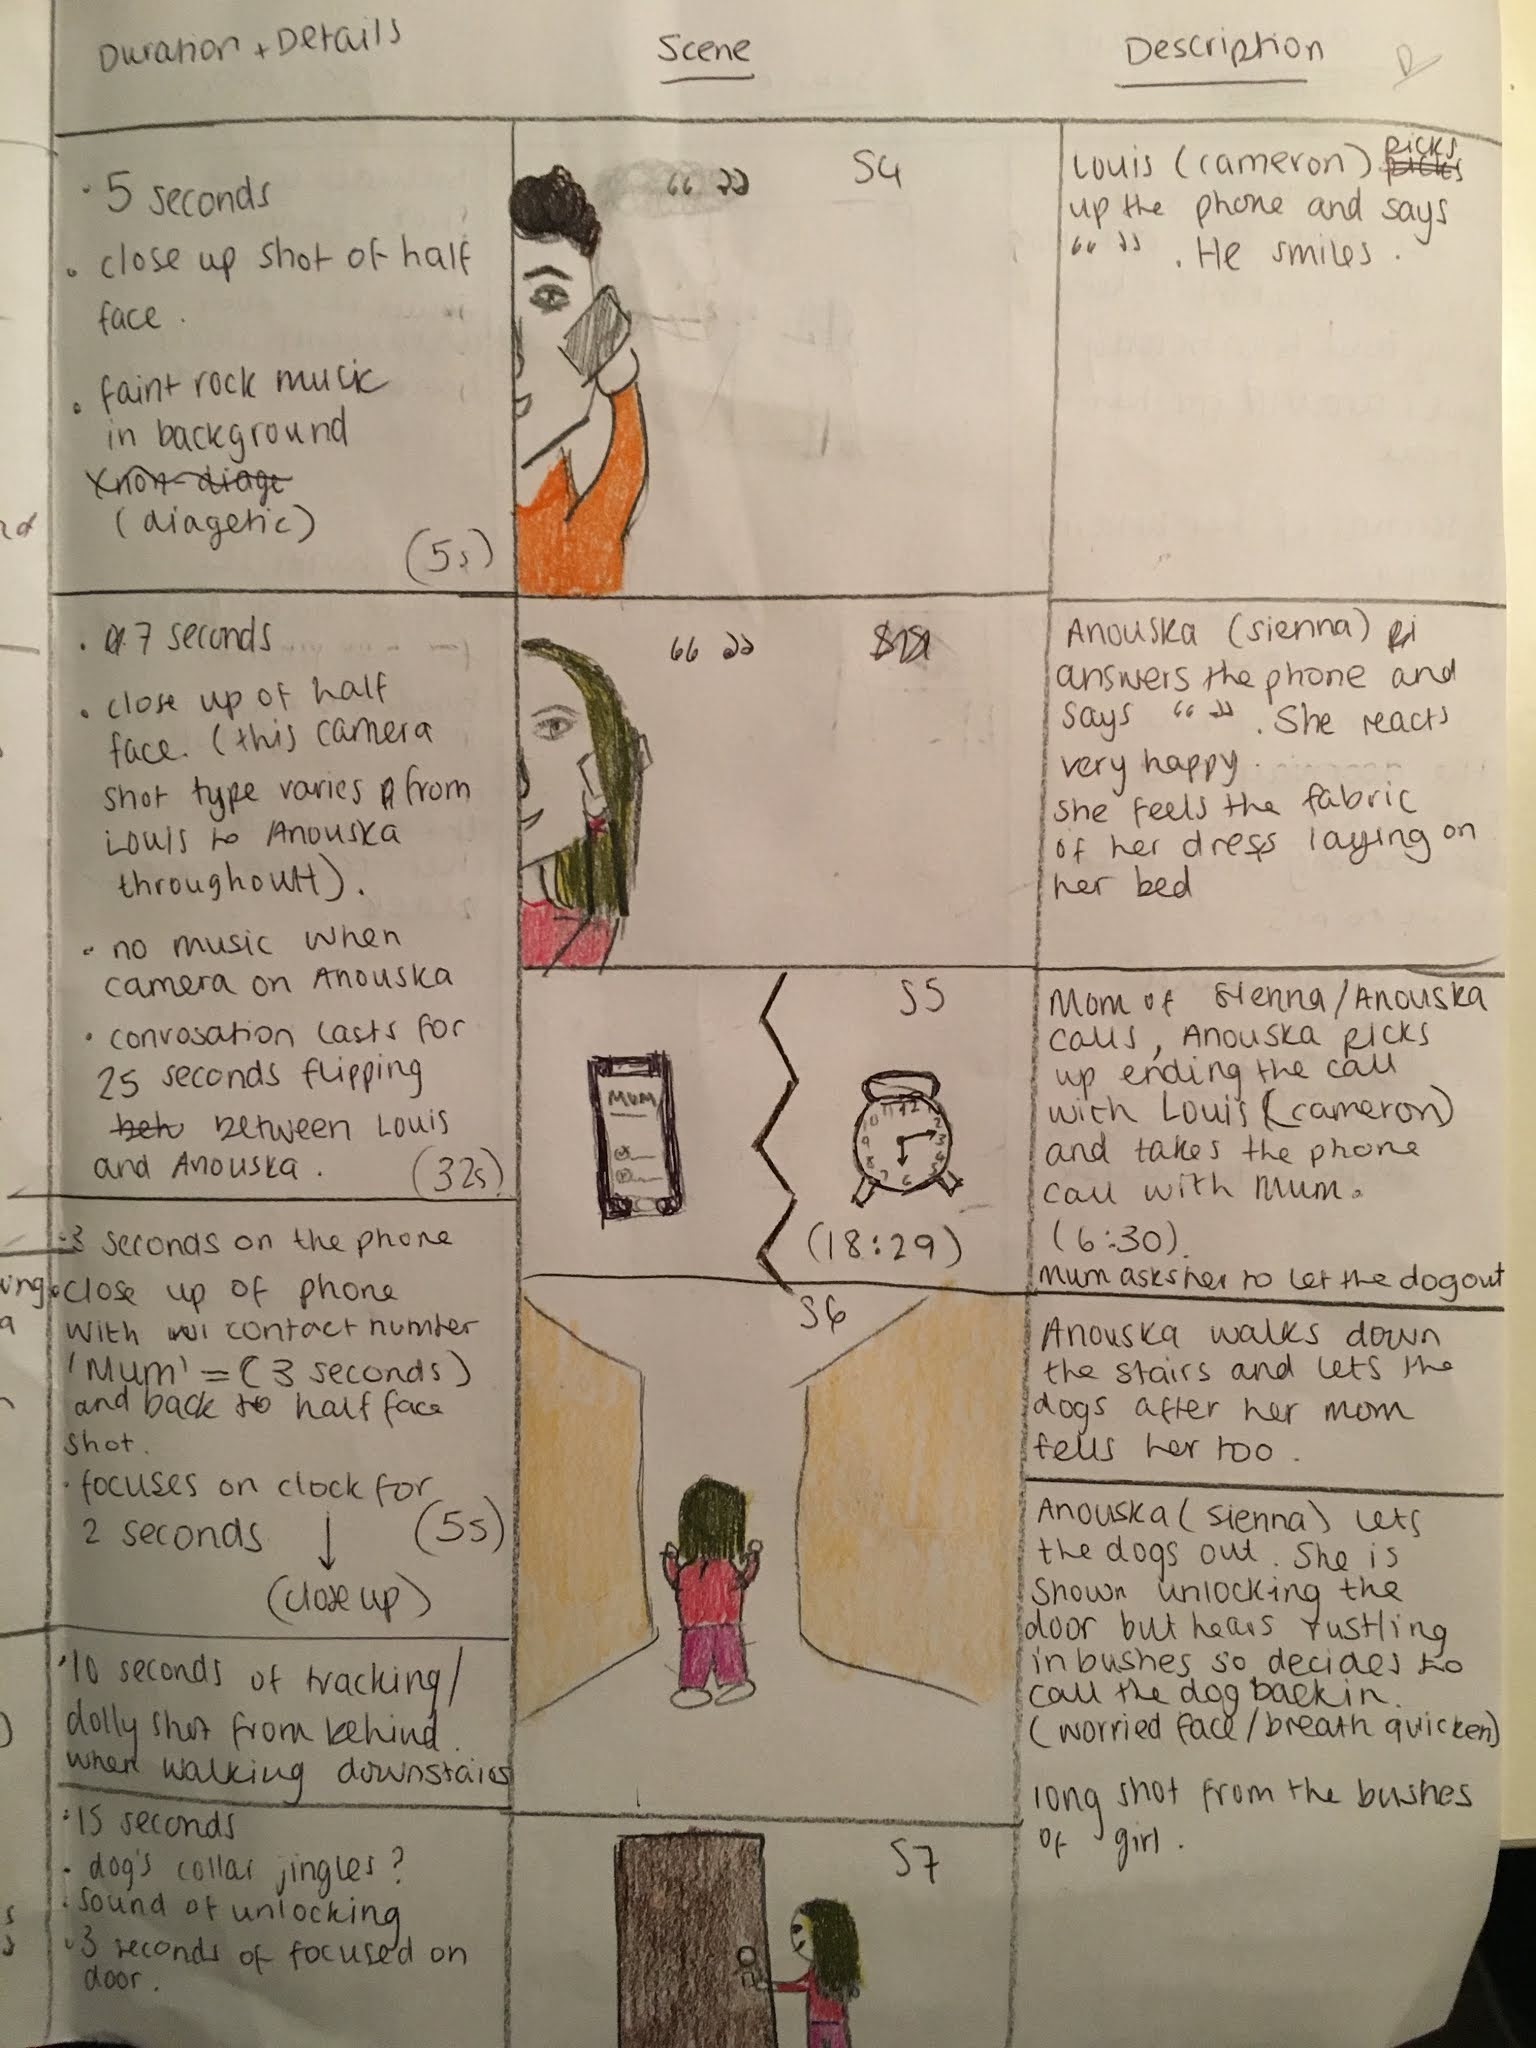 Duration + Details
Scene
Description
• 5 seconds
• close up shot of half
face.
• faint rock music
in background
(diagetic)
(5s)
“ ”
S4
Louis (cameron) picks
up the phone and says
“ ”. He smiles.
• 7 seconds
• close up of half
face. (this camera
shot type varies from
Louis to Anouska
throughout).
• no music when
camera on Anouska
• convosation lasts for
25 seconds flipping
between Louis
and Anouska.
(32s)
“ ”
Anouska (sienna)
answers the phone and
says “ ”. She reacts
very happy.
she feels the fabric
of her dress laying on
her bed
MUM
S5
(18:29)
Mom of sienna/Anouska
calls, Anouska picks
up ending the call
with Louis (cameron)
and takes the phone
call with mum.
(6:30).
Mum asks her to let the dog out
• 3 seconds on the phone
• close up of phone
with contact number
'Mum' = (3 seconds)
and back to half face
shot.
• focuses on clock for
2 seconds ↓ (5s)
(close up)
S6
Anouska walks down
the stairs and lets the
dogs after her mom
tells her too.
• 10 seconds of tracking/
dolly shot from behind
when walking downstairs
Anouska (sienna) lets
the dogs out. She is
shown unlocking the
door but hears rustling
in bushes so decides to
call the dog back in.
(worried face/breath quicken)
long shot from the bushes
of girl.
• 15 seconds
• dog's collar jingles?
• sound of unlocking
• 3 seconds of focused on
door.
S7